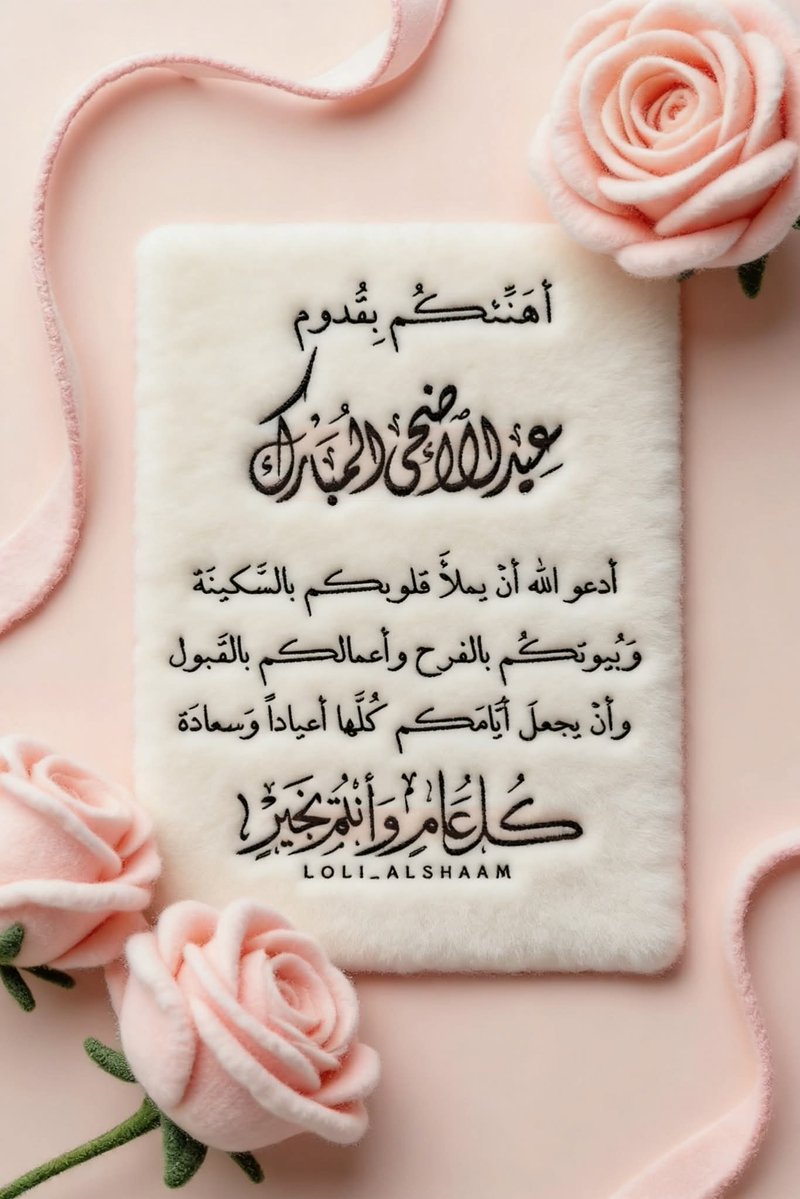 أهَنِّئكُم بِقُدوم
عِيد الأضحى المُبَارك
أدعو الله أنْ يملأَ قلوبكم بالسَّكينَة
وَبُيوتكُم بالفرح وأعمالكم بالقَبول
وأنْ يجعلَ أيَّامَكم كُلَّها أعياداً وَسعادَة
كُل عَامٍ وَأنتُم بَخَيرٍ
LOLI_ALSHAAM